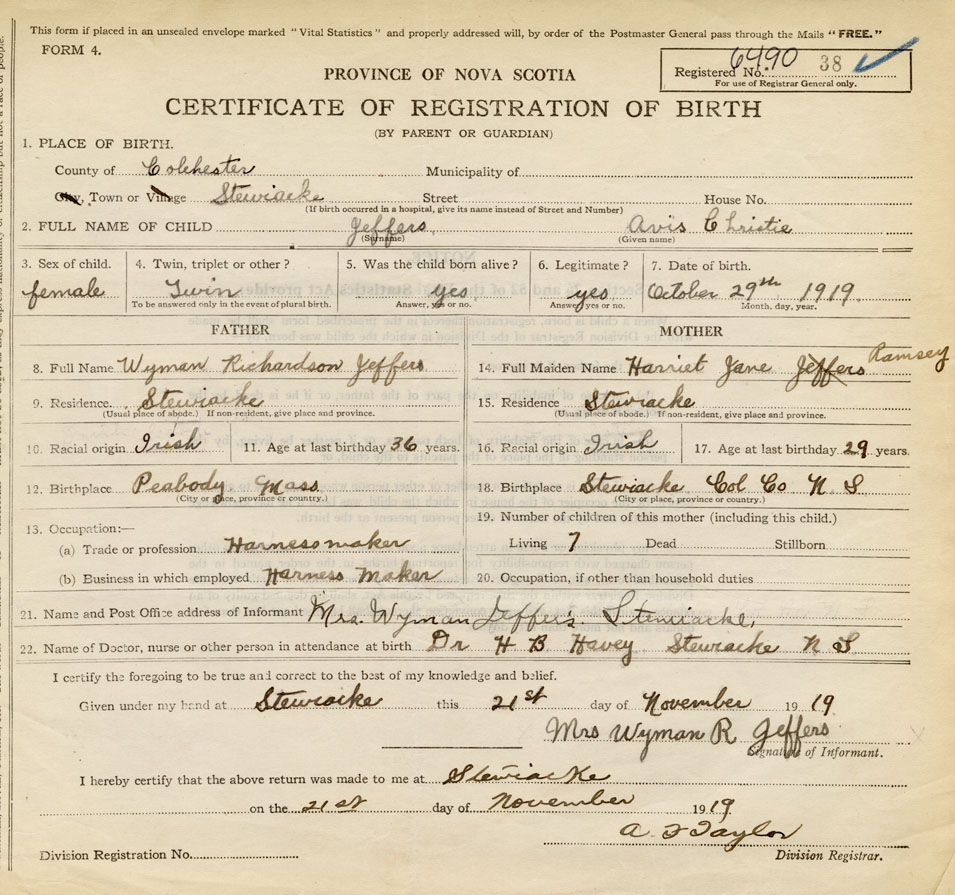 This form if placed in an unsealed envelope marked "Vital Statistics" and properly addressed will, by order of the Postmaster General pass through the Mails "FREE."
FORM 4.
Registered No. 6490 38
For use of Registrar General only.
PROVINCE OF NOVA SCOTIA
CERTIFICATE OF REGISTRATION OF BIRTH
(BY PARENT OR GUARDIAN)
1. PLACE OF BIRTH.
County of Colchester Municipality of
City, Town or Village Stewiacke Street House No.
(If birth occurred in a hospital, give its name instead of Street and Number)
2. FULL NAME OF CHILD Jeffers Avis Christie
(Surname) (Given name)
3. Sex of child. 4. Twin, triplet or other? 5. Was the child born alive? 6. Legitimate? 7. Date of birth.
female Twin yes yes October 29th 1919
To be answered only in the event of plural birth. Answer, yes or no. Answer, yes or no. Month, day, year.
FATHER MOTHER
8. Full Name Wyman Richardson Jeffers 14. Full Maiden Name Harriet Jane Jeffers Ramsey
9. Residence Stewiacke 15. Residence Stewiacke
(Usual place of abode.) If non-resident, give place and province. (Usual place of abode.) If non-resident, give place and province.
10. Racial origin Irish 11. Age at last birthday 36 years. 16. Racial origin Irish 17. Age at last birthday 29 years.
12. Birthplace Peabody Mass 18. Birthplace Stewiacke Col Co N S
(City or place, province or country.) (City or place, province or country.)
13. Occupation:— 19. Number of children of this mother (including this child.)
(a) Trade or profession Harnessmaker Living 7 Dead Stillborn
(b) Business in which employed Harness Maker 20. Occupation, if other than household duties
21. Name and Post Office address of Informant Mrs. Wyman Jeffers. Stewiacke,
22. Name of Doctor, nurse or other person in attendance at birth Dr H B Havey Stewiacke N S
I certify the foregoing to be true and correct to the best of my knowledge and belief.
Given under my hand at Stewiacke this 21st day of November 1919
Mrs Wyman R Jeffers
Signature of Informant.
I hereby certify that the above return was made to me at Stewiacke
on the 21st day of November 1919
A. F Taylor
Division Registration No. Division Registrar.